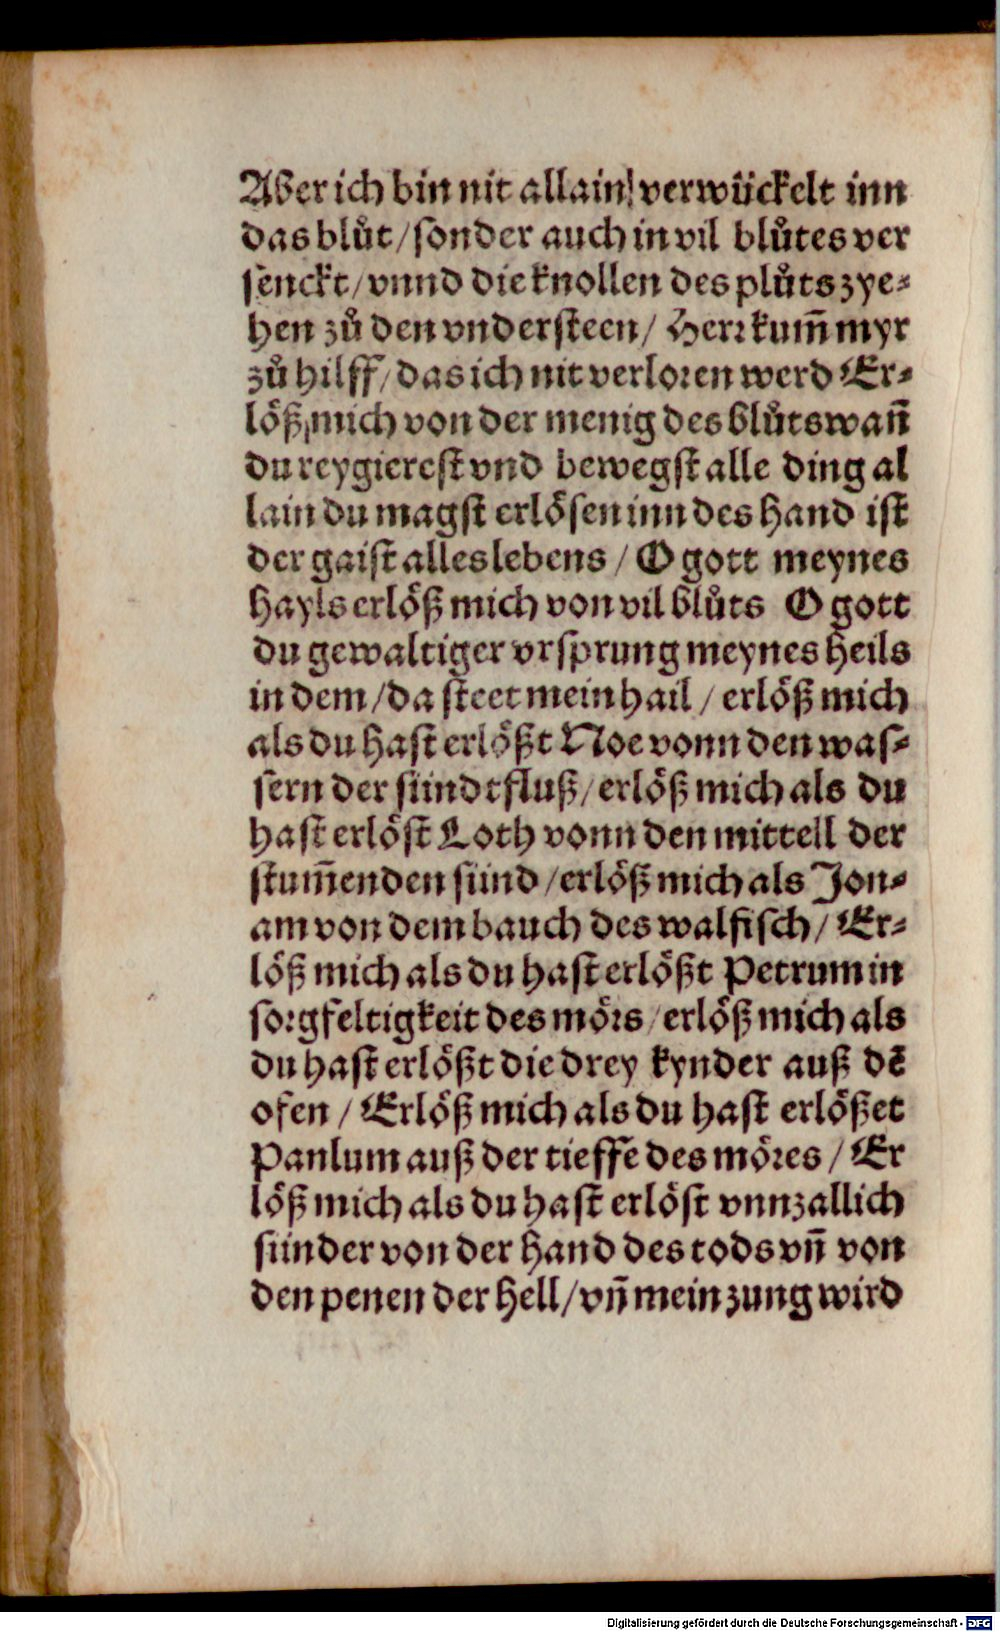 Aber ich bin nit allain verwückelt inn
das blůt / sonder auch in vil blůtes ver
senckt / vnnd die knollen des plůts zye⸗
hen zů den vndersteen / Herr kum̄ myr
zů hilff / das ich nit verloren werd Er⸗
löß mich von der menig des blůts wan̄
du reygierest vnd bewegst alle ding al
lain du magst erlösen inn des hand ist
der gaist alles lebens / O gott meynes
hayls erlöß mich von vil blůts O gott
du gewaltiger vrsprung meynes heils
in dem / da steet mein hail / erlöß mich
als du hast erlößt Noe vonn den was⸗
sern der sündtfluß / erlöß mich als du
hast erlöst Loth vonn den mittell der
stum̄enden sünd / erlöß mich als Jon⸗
am von dem bauch des walfisch / Er⸗
löß mich als du hast erlößt Petrum in
sorgfeltigkeit des mörs / erlöß mich als
du hast erlößt die drey kynder auß dē
ofen / Erlöß mich als du hast erlößet
Panlum auß der tieffe des möres / Er
löß mich als du hast erlöst vnnzallich
sünder von der hand des tods vn̄ von
den penen der hell / vn̄ mein zung wird
Digitalisierung gefördert durch die Deutsche Forschungsgemeinschaft - DFG